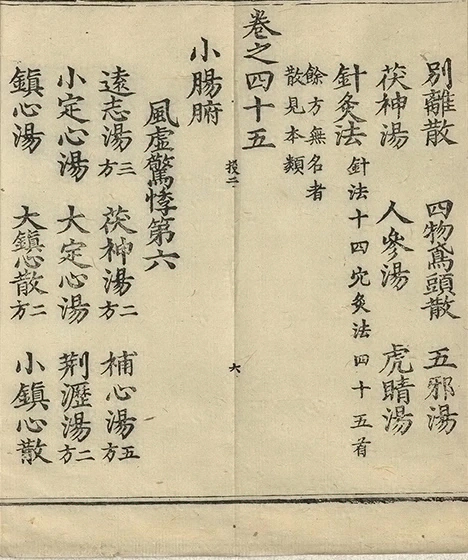 別離散 四物鳶頭散 五邪湯
茯神湯 人參湯 虎睛湯
針灸法 針法十四穴灸法四十五首
餘方無名者
散見本類
卷之四十五
授二 六
小腸腑
風虛驚悸第六
遠志湯三方 茯神湯二方 補心湯五方
小定心湯 大定心湯 荆瀝湯二方
鎮心湯 大鎮心散二方 小鎮心散